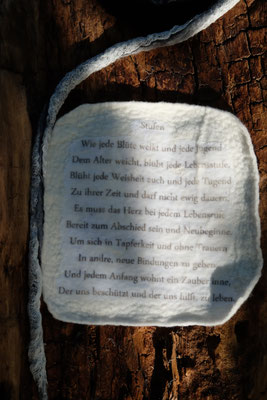 Stufen
Wie jede Blüte welkt und jede Jugend
Dem Alter weicht, blüht jede Lebensstufe,
Blüht jede Weisheit auch und jede Tugend
Zu ihrer Zeit und darf nicht ewig dauern.
Es muss das Herz bei jedem Lebensrufe
Bereit zum Abschied sein und Neubeginne,
Um sich in Tapferkeit und ohne Trauern
In andre, neue Bindungen zu geben.
Und jedem Anfang wohnt ein Zauber inne,
Der uns beschützt und der uns hilft, zu leben.